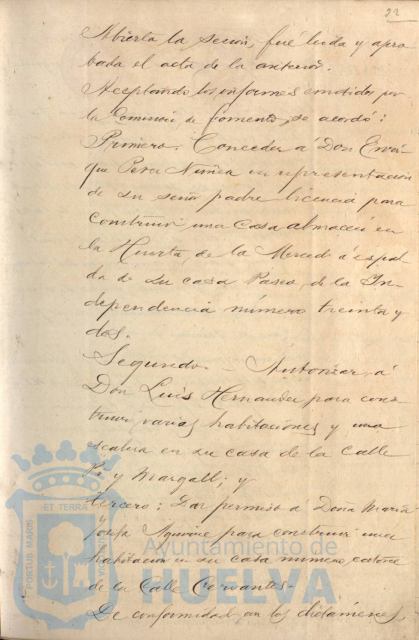 22
Abierta la sesión, fué leida y apro
bada el acta de la anterior.
Aceptando los informes emitidos por
la Comisión de fomento, se acordó:
Primero. Conceder á Don Enri
que Pera Nuñez en representación
de su señor padre licencia para
construir una casa almacén en
la Huerta de la Merced á espal
da de su casa Paseo de la In
dependencia número treinta y
dos.
Segundo. - Autorizar á
Don Luis Hernandez para cons
truir varias habitaciones y una
escalera en su casa de la calle
Pi y Margall; y
tercero: Dar permiso á Dona Maria
y
Josefa Aguirre para construir una
habitación en su casa número catorce
de la Calle Cervantes.-
De conformidad con los dictámenes
PORTUS MARIS
ET TERRÆ
Ayuntamiento de
HUELVA